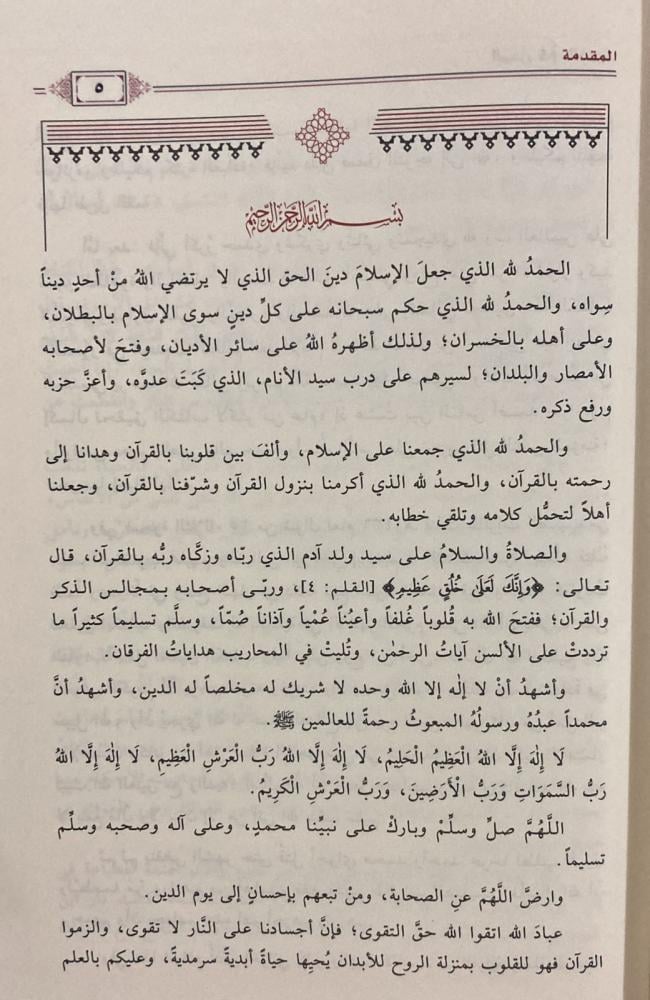 المقدمة
٥
بسم الله الرحمن الرحيم
الحمدُ لله الذي جعلَ الإسلامَ دينَ الحق الذي لا يرتضي اللهُ منْ أحدٍ ديناً
سِواه، والحمدُ لله الذي حكم سبحانه على كلِّ دينٍ سوى الإسلام بالبطلان،
وعلى أهله بالخسران؛ ولذلك أظهرهُ اللهُ على سائر الأديان، وفتحَ لأصحابه
الأمصار والبلدان؛ لسيرهم على درب سيد الأنام، الذي كَبَتَ عدوَّه، وأعزَّ حزبه
ورفع ذكره.
والحمدُ لله الذي جمعنا على الإسلام، وألفَ بين قلوبنا بالقرآن وهدانا إلى
رحمته بالقرآن، والحمدُ لله الذي أكرمنا بنزول القرآن وشرَّفنا بالقرآن، وجعلنا
أهلاً لتحمُّل كلامه وتلقي خطابه.
والصلاةُ والسلامُ على سيد ولد آدم الذي ربّاه وزكَّاه ربُّه بالقرآن، قال
تعالى: ﴿وَإِنَّكَ لَعَلَىٰ خُلُقٍ عَظِيمٍ﴾ [القلم: ٤]، وربّى أصحابه بمجالس الذكر
والقرآن؛ ففتحَ الله به قُلوباً غُلفاً وأعيُناً عُمْياً وآذاناً صُمّاً، وسلَّم تسليماً كثيراً ما
ترددتْ على الألسن آياتُ الرحمٰن، وتُليتْ في المحاريب هداياتُ الفرقان.
وأشهدُ أنْ لا إلٰه إلا الله وحده لا شريك له مخلصاً له الدين، وأشهدُ أنَّ
محمداً عبدُهُ ورسولُهُ المبعوثُ رحمةً للعالمين ﷺ.
لَا إِلٰهَ إِلَّا اللهُ الْعَظِيمُ الْحَلِيمُ، لَا إِلٰهَ إِلَّا اللهُ رَبُّ الْعَرْشِ الْعَظِيمِ، لَا إِلٰهَ إِلَّا اللهُ
رَبُّ السَّمَوَاتِ وَرَبُّ الْأَرَضِينَ، وَرَبُّ الْعَرْشِ الْكَرِيمُ.
اللَّهُمَّ صلِّ وسلِّمْ وباركْ على نبيِّنا محمدٍ، وعلى آله وصحبه وسلِّم
تسليماً.
وارضَ اللَّهُمَّ عنِ الصحابة، ومنْ تبعهم بإحسانٍ إلى يوم الدين.
عبادَ الله اتقوا الله حقَّ التقوى؛ فإنَّ أجسادنا على النَّار لا تقوى، والزموا
القرآن فهو للقلوب بمنزلة الروح للأبدان يُحيِها حياةً أبديةً سرمديةً، وعليكم بالعلم